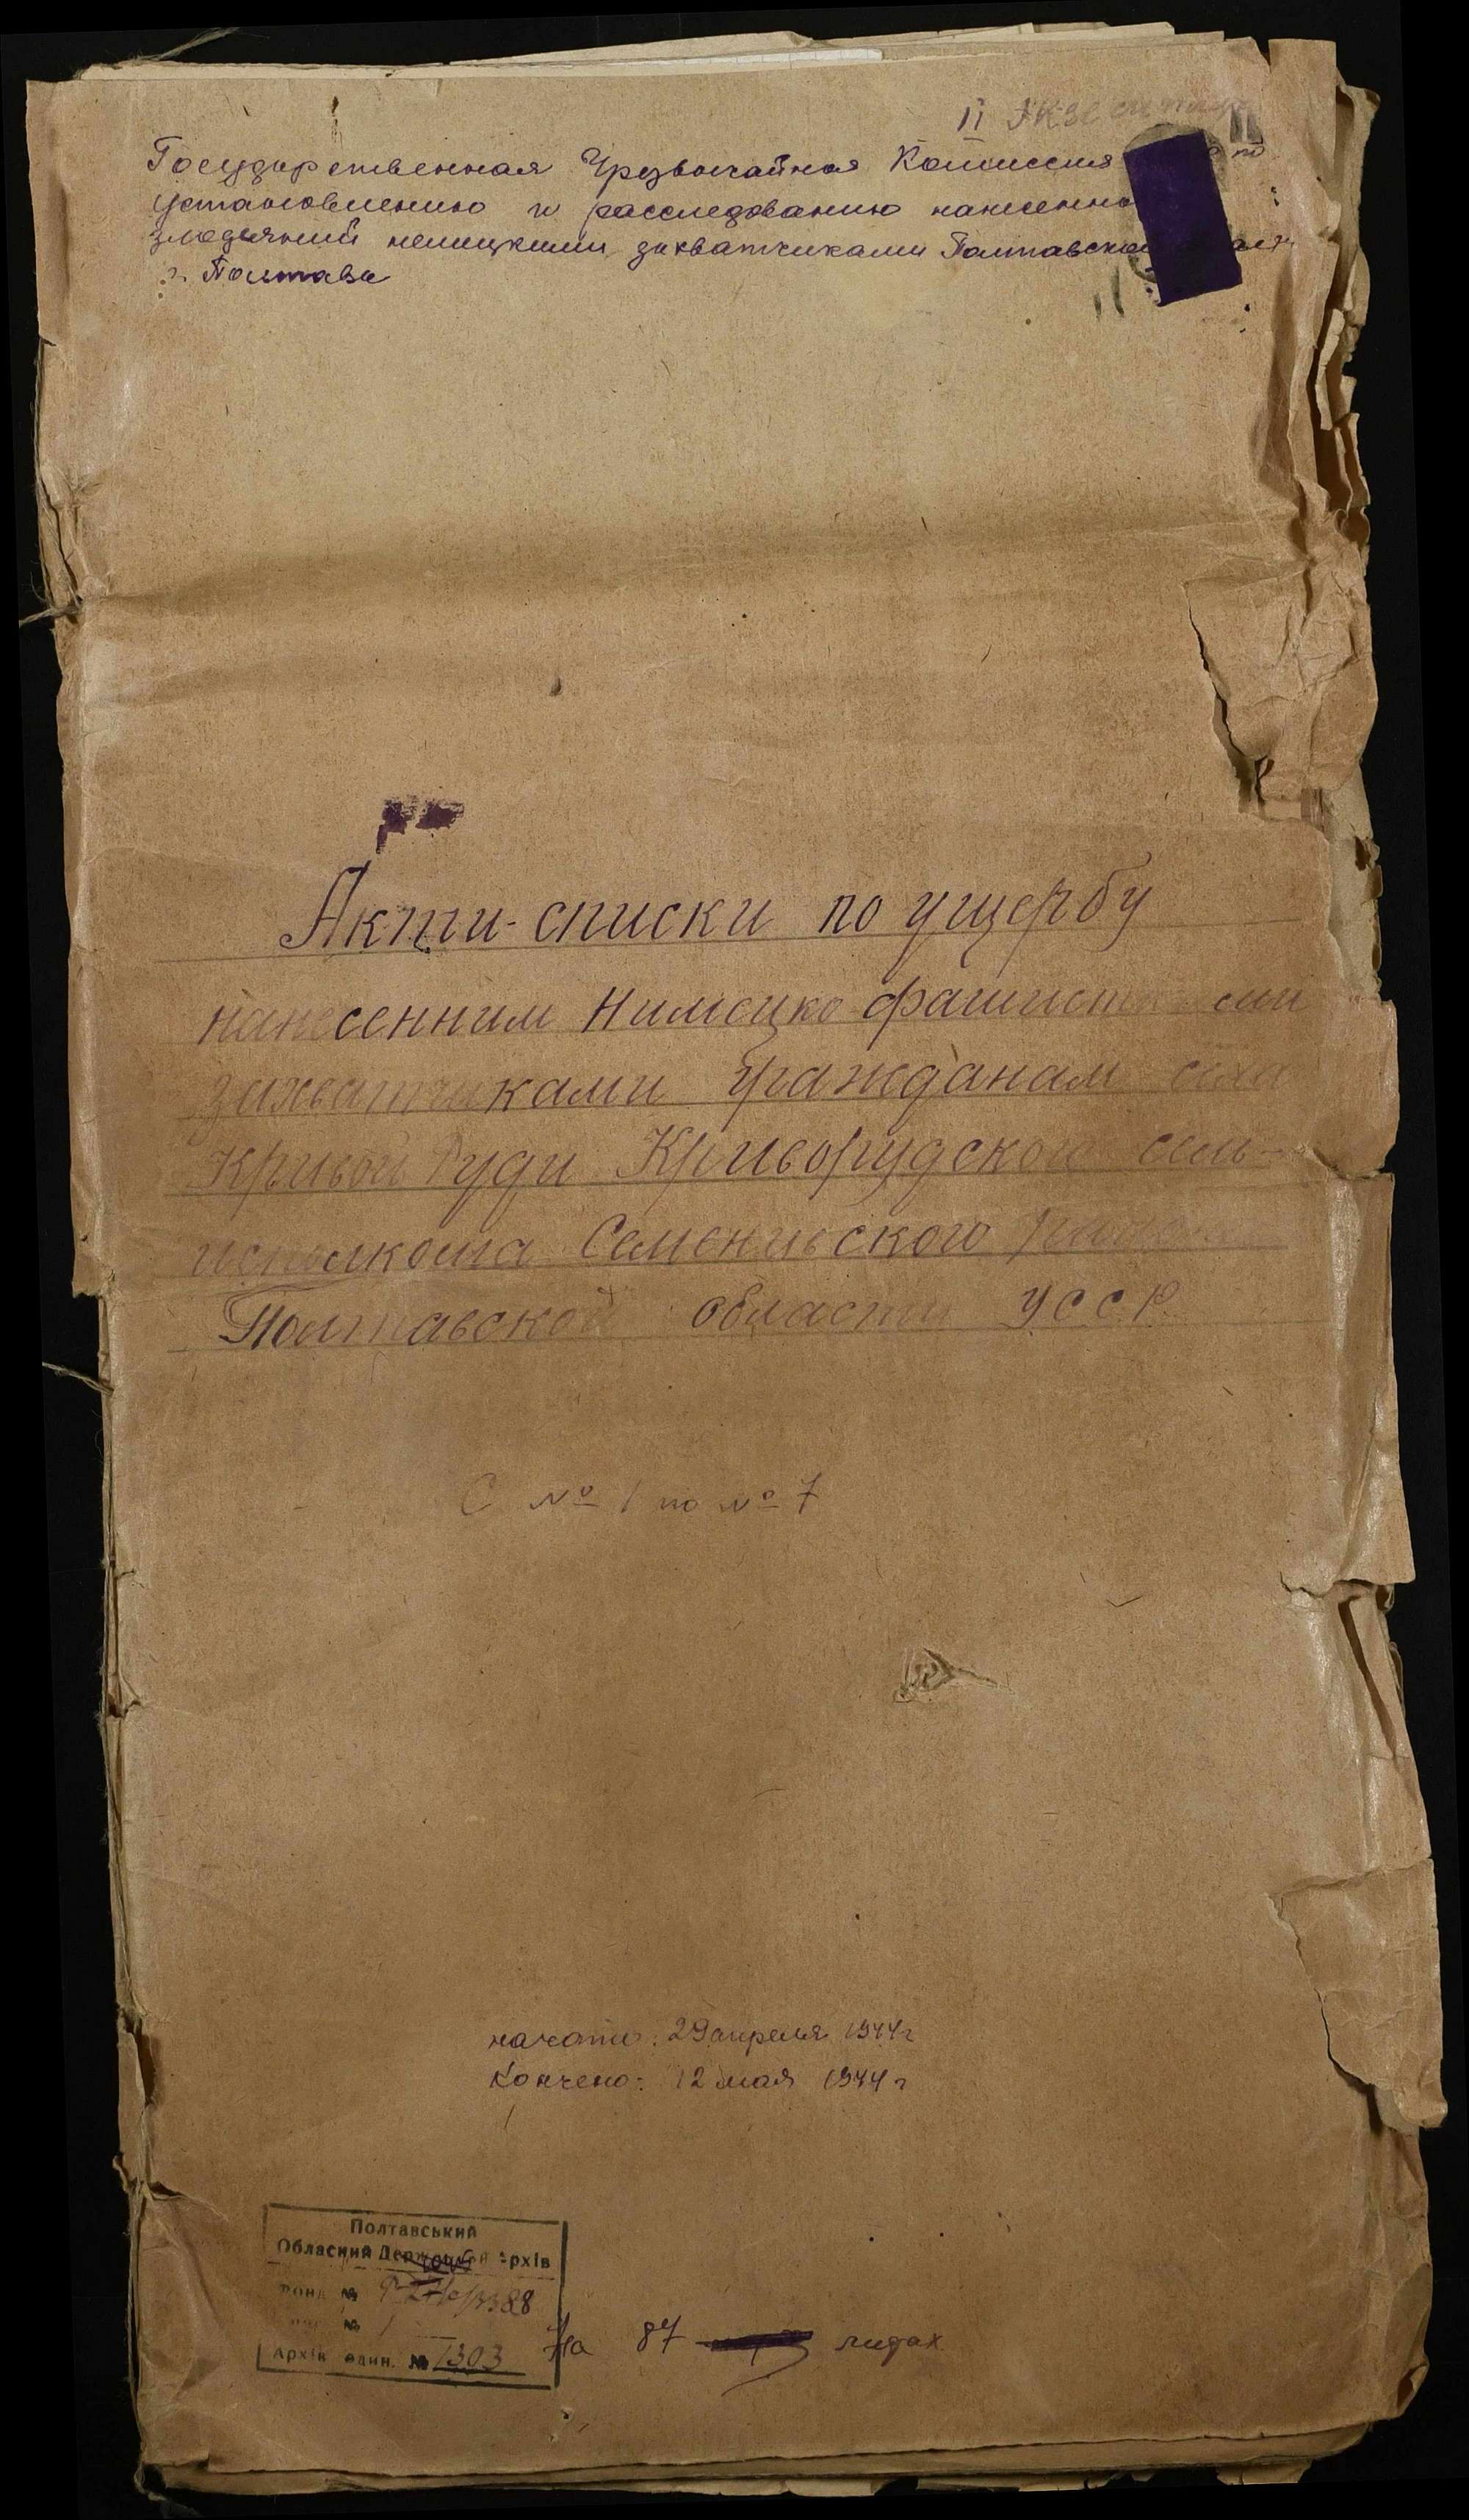 II
Государственная Чрезвычайная Комиссия по
установлению и расследованию
злодеяний немецкими захватчиками Полтавской
г. Полтава
Акти-списки по ущербу
нанесенним Нимецко фашист ми
захватчиками гражданам села
Кривой Руди Криворудского сель-
исполкома Семенивского района
Полтавской области УССР
С № 1 по № 7
начато: 29 апреля 1944 г
Кончено: 12 мая 1944 г
Полтавський
Обласний Державний Архів
Фонд № 3388
№ 1
Архів один. № 1303
На 87 листах